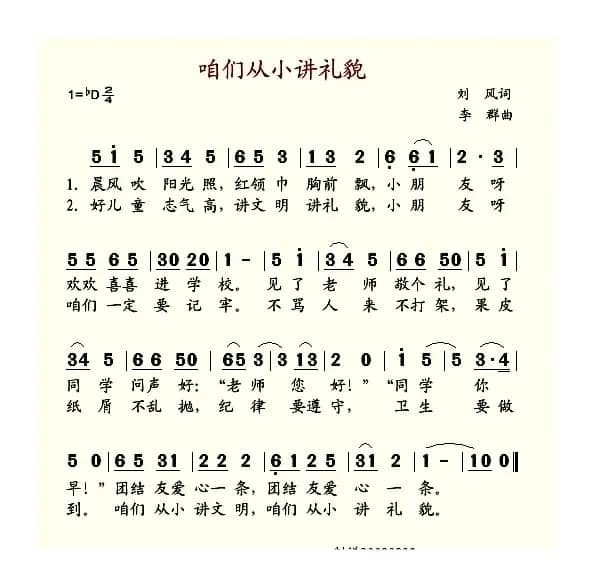 咱们从小讲礼貌
1=♭D 2/4
刘 风词
李 群曲
5 i 5 | 3 4 5 | 6 5 3 | 1 3 2 | 6 6 1 | 2 · 3 |
1. 晨风 吹 阳光 照,红领 巾 胸前 飘,小 朋 友 呀
2. 好儿 童 志气 高,讲文 明 讲礼 貌,小 朋 友 呀
5 5 6 5 | 3 0 2 0 | 1 - | 5 i | 3 4 5 | 6 6 5 0 | 5 i |
欢欢 喜喜 进 学 校。 见 了 老 师 敬个 礼,见 了
咱们 一定 要 记 牢。 不 骂 人 来 不打 架,果 皮
3 4 5 | 6 6 5 0 | 6 5 3 | 3 1 3 | 2 0 | i 5 | 3 · 4 |
同 学 问声 好:“老 师 您 好!” “同 学 你
纸 屑 不乱 抛,纪 律 要遵 守, 卫 生 要 做
5 0 | 6 5 3 1 | 2 2 2 | 6 1 2 5 | 3 1 2 | 1 - | 1 0 0 ‖
早!” 团结 友爱 心一 条,团结 友爱 心 一 条。
到。 咱们 从小 讲文 明,咱们 从小 讲 礼 貌。